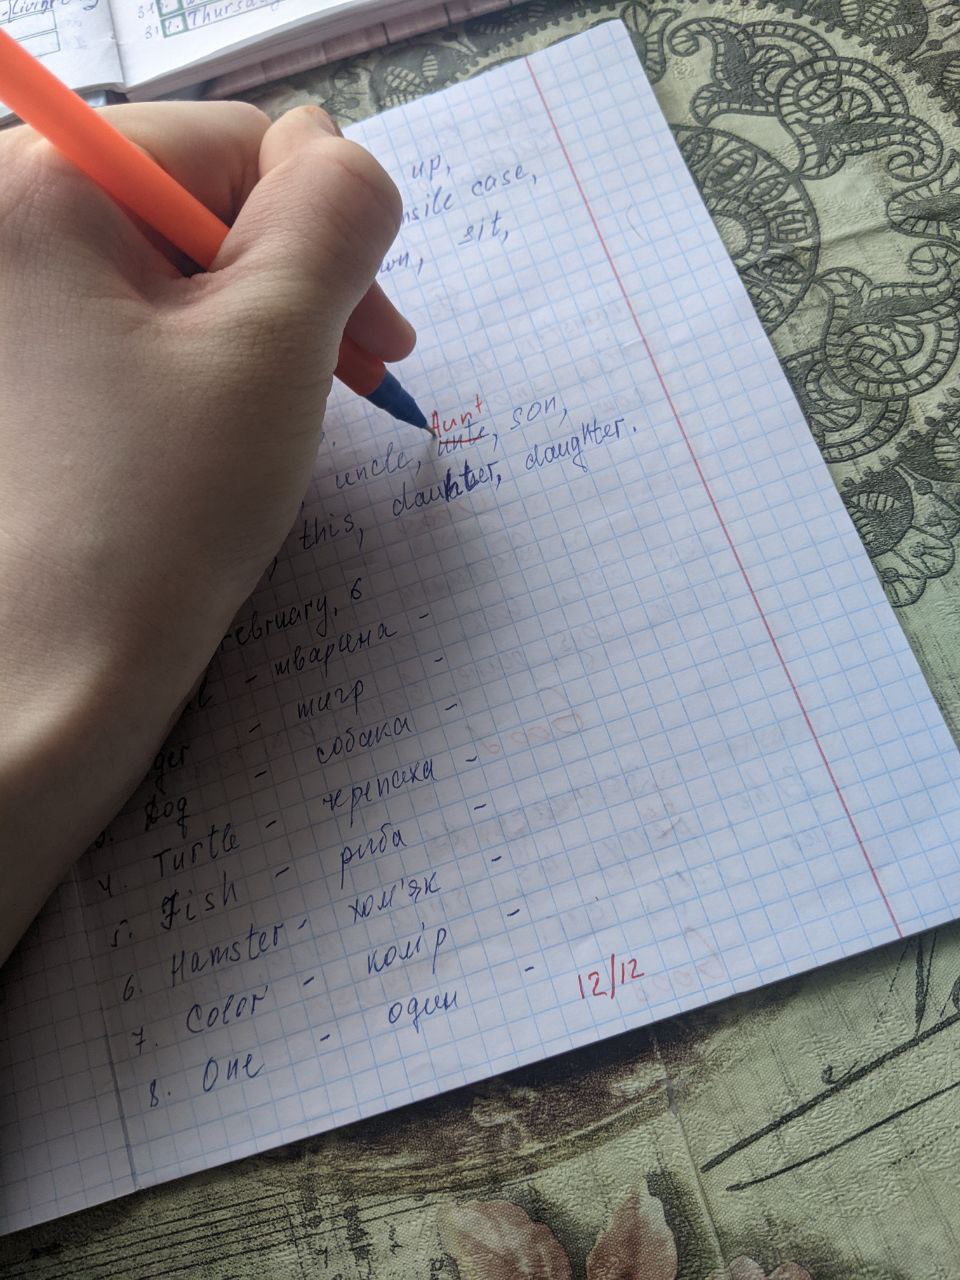 Thursday
up,
case,
sit,
Aunt
uncle, unte, son,
this, daughter, daughter.
February, 6
- тварина -
- тигр -
Dog - собака -
4. Turtle - черепаха -
5. Fish - риба -
6. Hamster - хом'як -
7. Color - колір -
8. One - один -
12/12